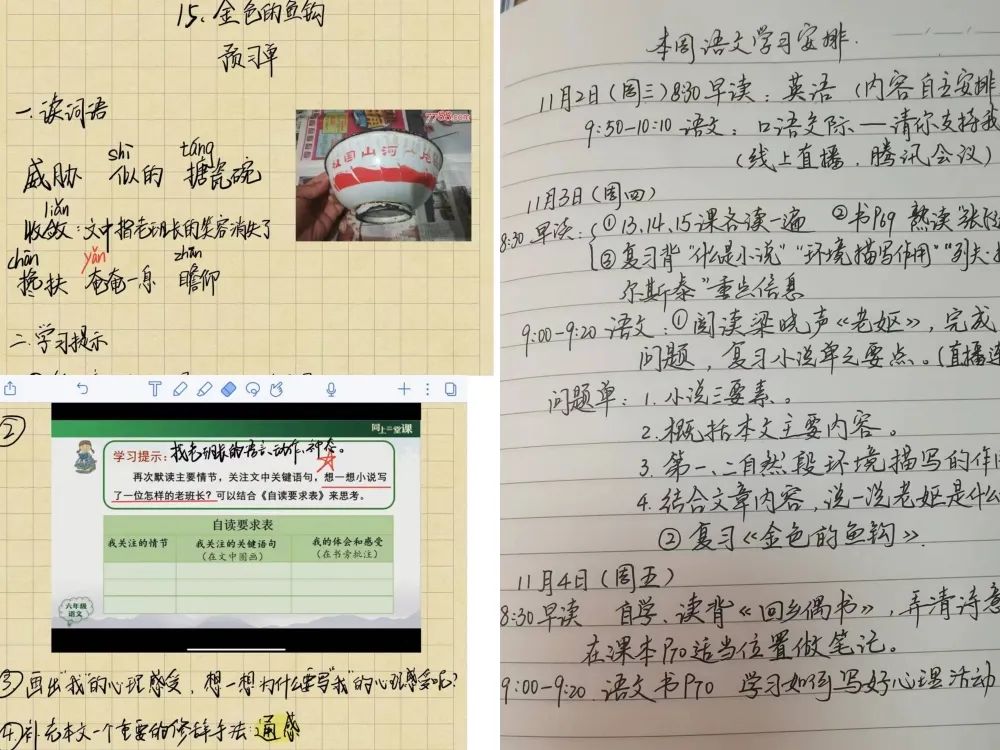 15、金色的鱼钩
预习单
一.读词语
shì táng
威胁 似的 搪瓷碗
liǎn
收敛：文中指老班长的笑容消失了
chān yǎn zhān
搀扶 奄奄一息 瞻仰
二.学习提示
7788.com
祖国山河一片红
②
同上一堂课
学习提示：找老班长的语言、动作、神态。
再次默读主要情节，关注文中关键语句，想一想小说写
了一位怎样的老班长？可以结合《自读要求表》来思考。
自读要求表
我关注的情节 我关注的关键语句 我的体会和感受
（在文中圈画） （在书旁批注）
六年级
语文
③画出"我"的心理感受，想一想为什么要写"我"的心理感受呢?
④补充本文一个重要的修辞手法:通感
本周语文学习安排.
11月2日(周三)8:30早读：英语（内容自主安排
9:50-10:10 语文：口语交际—请你支持我
(线上直播，腾讯会议)
11月3日(周四)
8:30 早读：①13、14、15课各读一遍 ②书P69 熟读"
③复习背"什么是小说""环境描写作用""列夫·托
尔斯泰"重点信息
9:00-9:20 语文：①阅读梁晓声《老妪》，完成
问题，复习小说单元要点。(直播连
问题单：1.小说三要素。
2.概括本文主要内容。
3.第一、二自然段环境描写的作用
4.结合文章内容，说一说老妪是什么
②复习《金色的鱼钩》
11月4日(周五)
8:30早读 自学、读背《回乡偶书》，弄清诗意
在课本P70适当位置做笔记。
9:00-9:20 语文书P70 学习如何写好心理活动